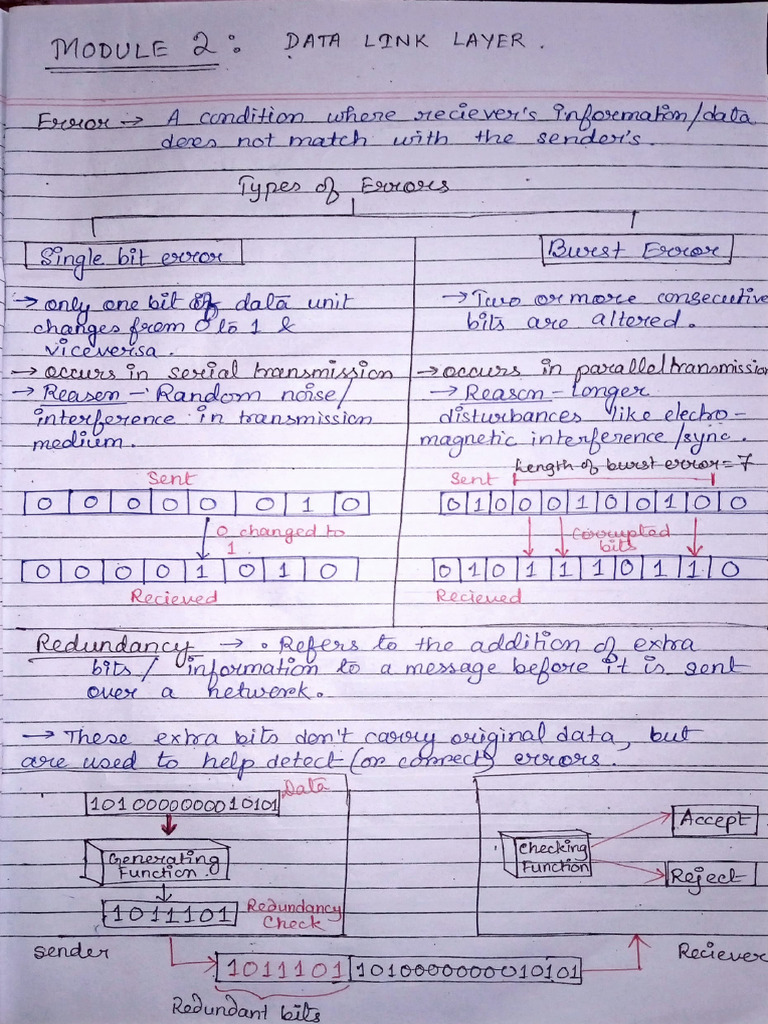 MODULE 2 : DATA LINK LAYER.
Error → A condition where reciever's information/data
does not match with the sender's.
Types of Errors
Single bit error
→ only one bit of data unit
changes from 0 to 1 &
viceversa.
→ occurs in serial transmission
→ Reason - Random noise/
interference in transmission
medium.
Sent
0 0 0 0 0 0 1 0
0 changed to
1
0 0 0 0 1 0 1 0
Recieved
Burst Error
→ Two or more consecutive
bits are altered.
→ occurs in parallel transmission
→ Reason - Longer
disturbances like electro-
magnetic interference /sync.
Length of burst error = 7
Sent
0 1 0 0 0 1 0 0 1 0 0
Corrupted
bits
0 1 0 1 1 1 1 0 1 1 1 0
Recieved
Redundancy → • Refers to the addition of extra
bits / information to a message before it is sent
over a network.
→ These extra bits don't carry original data, but
are used to help detect (or correct) errors.
Data
101000000010101
Generating
Function.
1011101
Redundancy
Check
Sender
Checking
Function
Accept
Reject
Reciever
1011101 1010000000010101
Redundant bits